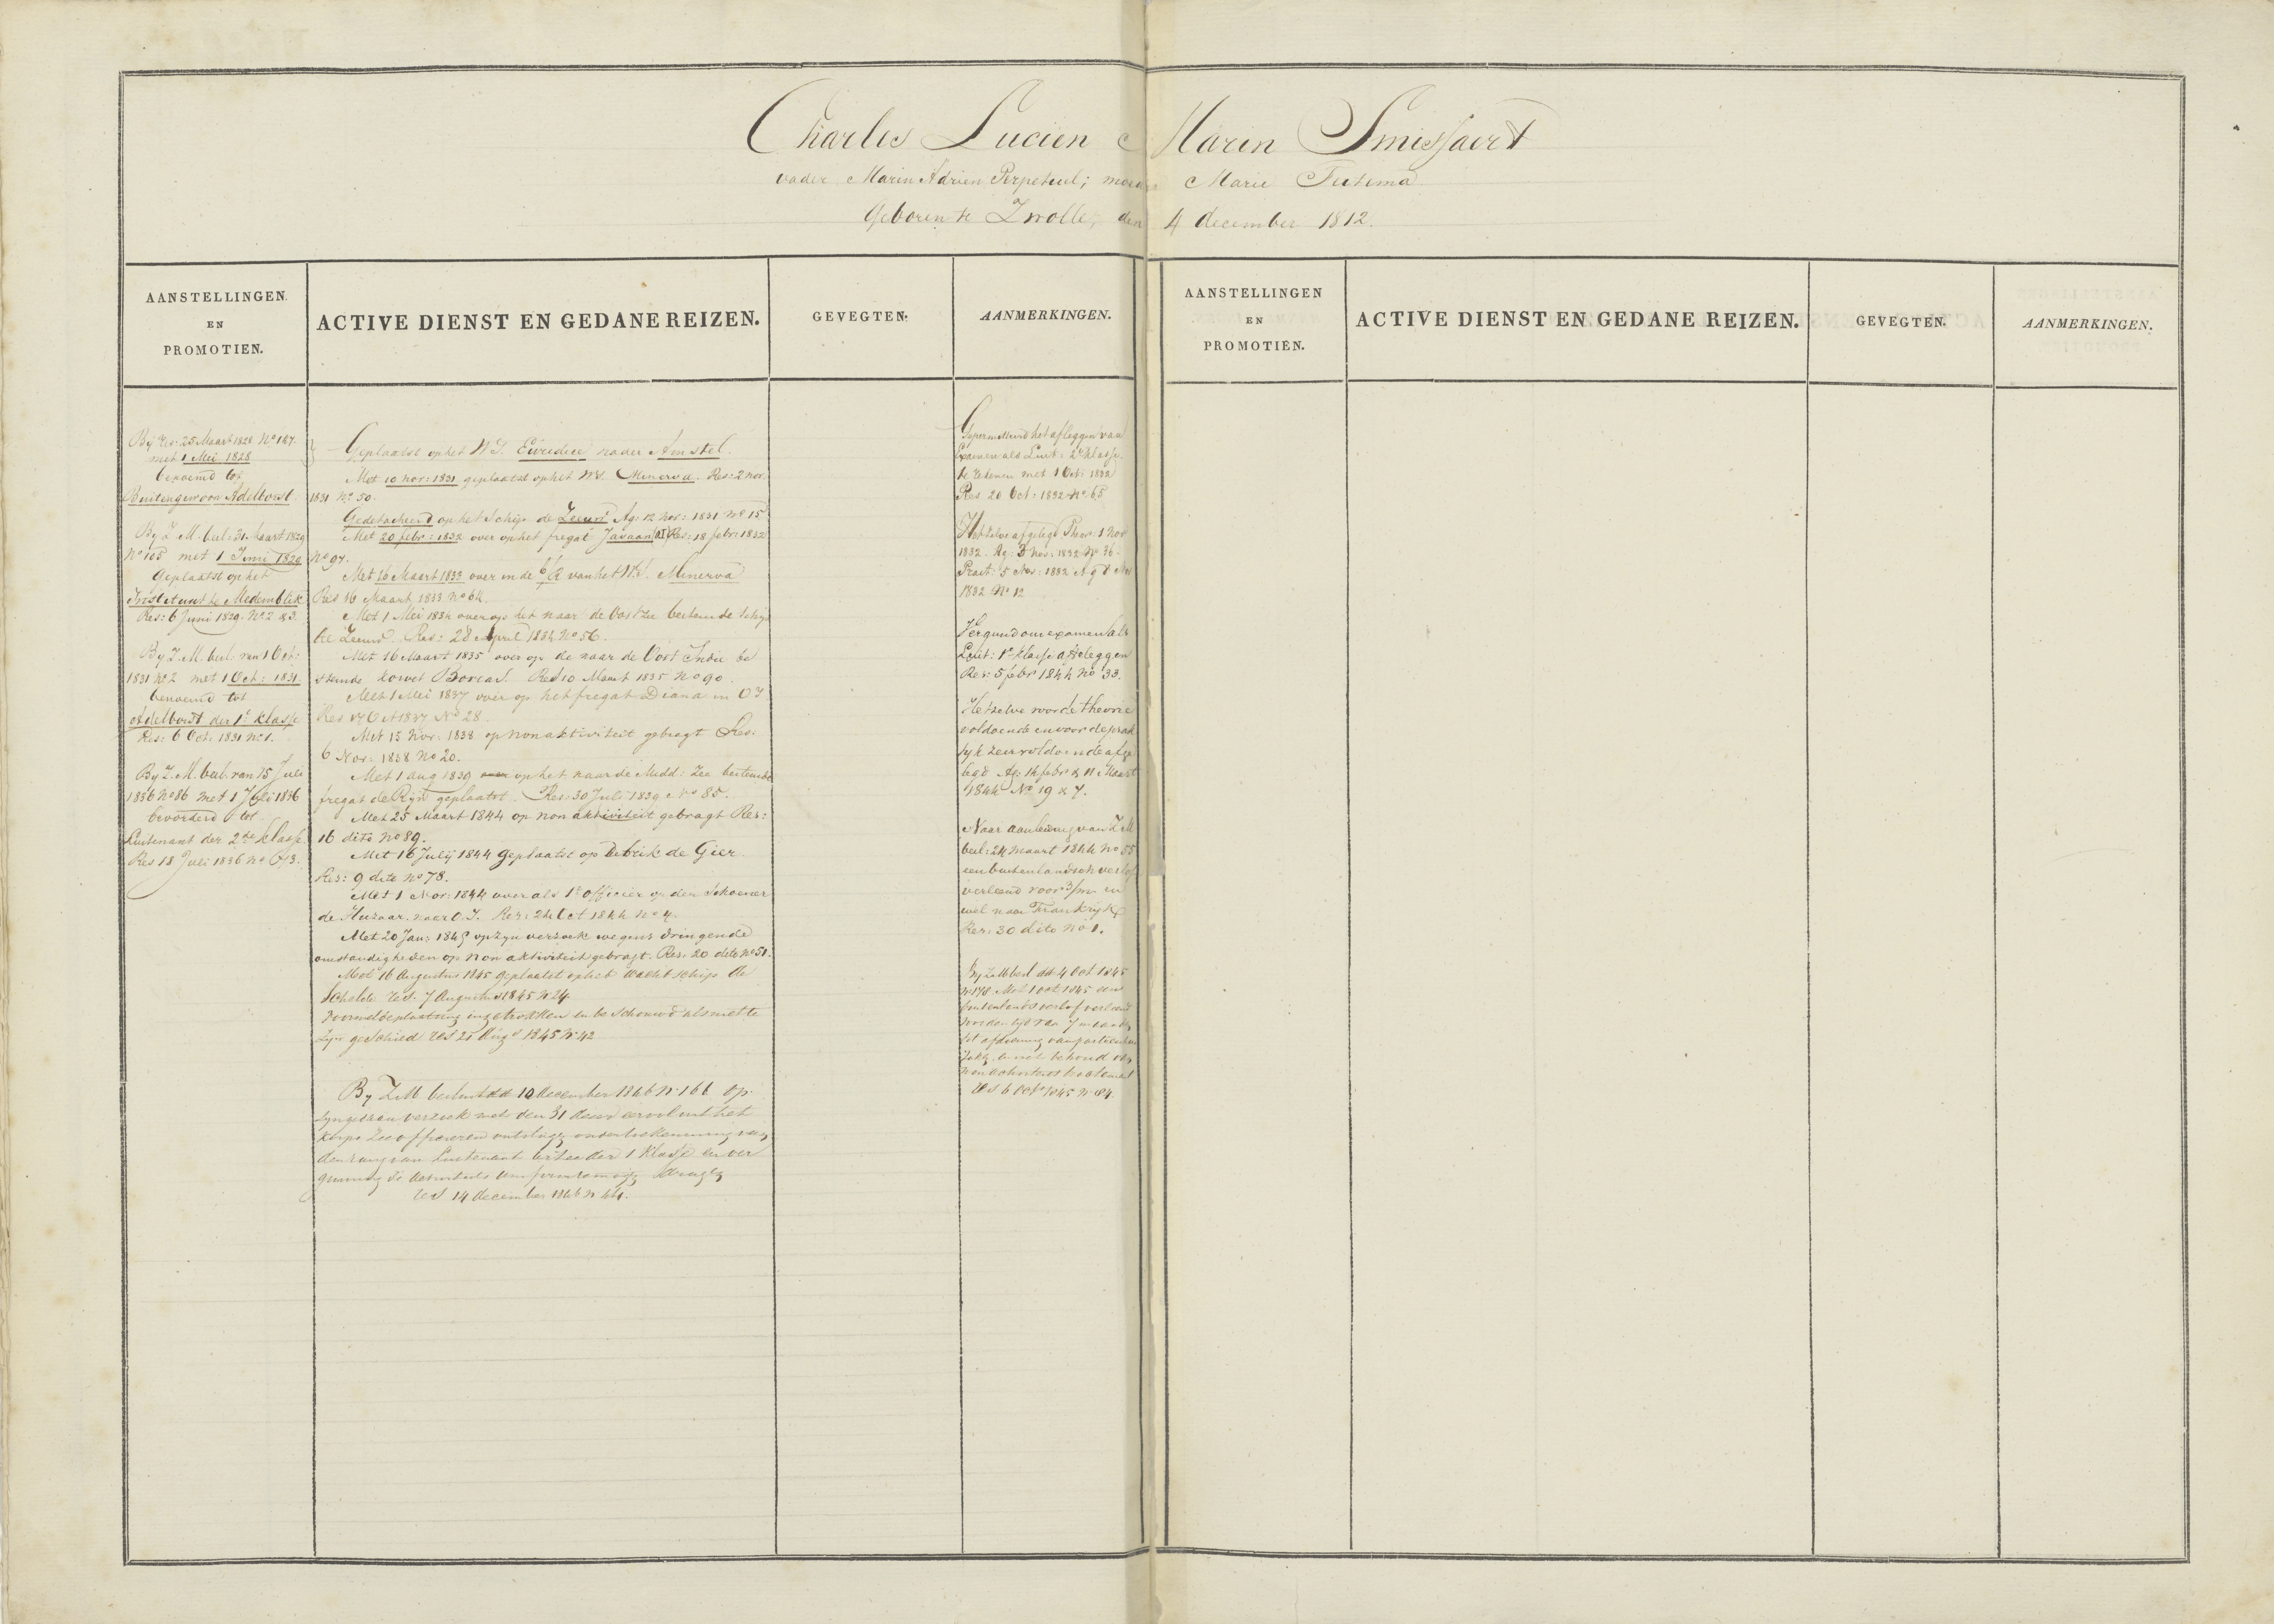 Charles Lucien Marin Smissaert
vader Marin Adrien Perpetuel; moeder Marie Tutema
Geboren te Zwolle, den 4 december 1812.
AANSTELLINGEN
EN
PROMOTIEN.
ACTIVE DIENST EN GEDANE REIZEN.
GEVEGTEN.
AANMERKINGEN.
AANSTELLINGEN
EN
PROMOTIEN.
ACTIVE DIENST EN GEDANE REIZEN.
GEVEGTEN.
AANMERKINGEN.
By Res: 25 Maart 1828 No 147.
met 1 Mei 1828
benoemd tot
Buitengewoon Adelborst.
By Z. M. besl: 31 Maart 1829
No 105 met 1 Juni 1829
Geplaatst op het
Instituut te Medemblik
Res: 6 Juni 1829. No 2 & 3.
By Z. M. besl. van 1 Oct:
1831 No 2 met 1 Oct: 1831.
benoemd tot
Adelborst der 1e klasse
Res: 6 Oct: 1831 No 1.
By Z. M. besl. van 15 Juli
1836 No 86 met 1 Juli 1836
bevorderd tot
Luitenant der 2de klasse
Res 18 Juli 1836 No 63.
Geplaatst op het W.S. Euridice nader Amstel.
Met 10 Nov: 1831 geplaatst op het W.S. Minerva. Res: 2 Nov.
1831 No 50.
Gedetacheerd op het Schip de Zeeuw Ag: 12 Nov: 1831 No 15
Met 20 febr: 1832 over op het fregat Javaan Res: 18 febr: 1832
No 97.
Met 16 Maart 1833 over in de van het W.S. Minerva
Res 16 Maart 1833 No 64.
Met 1 Mei 1834 over op het naar de Oostzee bestemde schip
de Zeeuw. Res: 28 April 1834 No 56.
Met 16 Maart 1835 over op de naar de Oost Indie be
stemde korvet Boreas. Res 10 Maart 1835 No 90.
Met 1 Mei 1837 over op het fregat Diana in O I
Res 17 Oct 1837 No 28.
Met 15 Nov: 1838 op non aktiviteit gebragt Res:
6 Nov: 1838 No 20.
Met 1 aug 1839 op het naar de Midd: Zee bestemde
fregat de Rijn geplaatst. Res: 30 Juli 1839 No 85.
Met 25 Maart 1844 op non aktiviteit gebragt Res:
16 dito No 89.
Met 16 July 1844 geplaatst op de brik de Gier.
Res: 9 dito No 78.
Met 1 Nov: 1844 over als 1e officier op den Schoener
de Huzaar. naar O. I. Res: 24 Oct 1844 No 4.
Met 20 Jan: 1845 op zyn verzoek wegens dringende
omstandigheden op non aktiviteit gebragt. Res: 20 dito No 51.
Met 16 Augustus 1845 geplaatst op het wachtschip de
Schelde Res. 7 Augustus 1845 N 24
voormelde plaatsing ingetrokken en beschouwd als niet te
zyn geschied Res 21 Aug 1845 N 42
By Z.M. besluit dd 10 december 1846 N 166 op
zyn gedaan verzoek met den 31 dezer eervol uit het
korps Zee officieren ontslagen onder toekenning van
den rang van Luitenant ter zee der 1 klasse en ver
gunning de activiteits uniform te mogen dragen
Res 14 december 1846 N 44.
Gepermitteerd het afleggen van
Examen als Luit: 2e klasse.
te rekenen met 1 Oct: 1832
Res 20 Oct: 1832 No 65
Hetzelve afgelegd Theor: 1 Nov
1832. Ag: 3 Nov: 1832 No 36
Pract: 5 Nov: 1832 Ag 8 Nov
1832 No 12
Vergund om examen als
Luit: 1e klasse af te leggen
Res: 5 febr 1844 No 33.
Hetzelve voor de theorie
voldoende en voor de prak
tyk zeer voldoende afge
legd Ag: 14 febr & 11 Maart
1844 No 19 & 7.
Naar aanleiding van Z M
besl: 24 maart 1844 No 55
een buitenlandsch verlof
verleend voor 3/m en
wel naar Frankryk
Res: 30 dito No 1.
By Z M besl dd 4 Oct 1845
N 178 Met 1 oct 1845 een
buitenlands verlof verleend
voor den tyd van 7 maanden
tot afdoening van particuliere
zaken en met behoud van
non activiteits traktement
Res 6 Oct 1845 N 84.